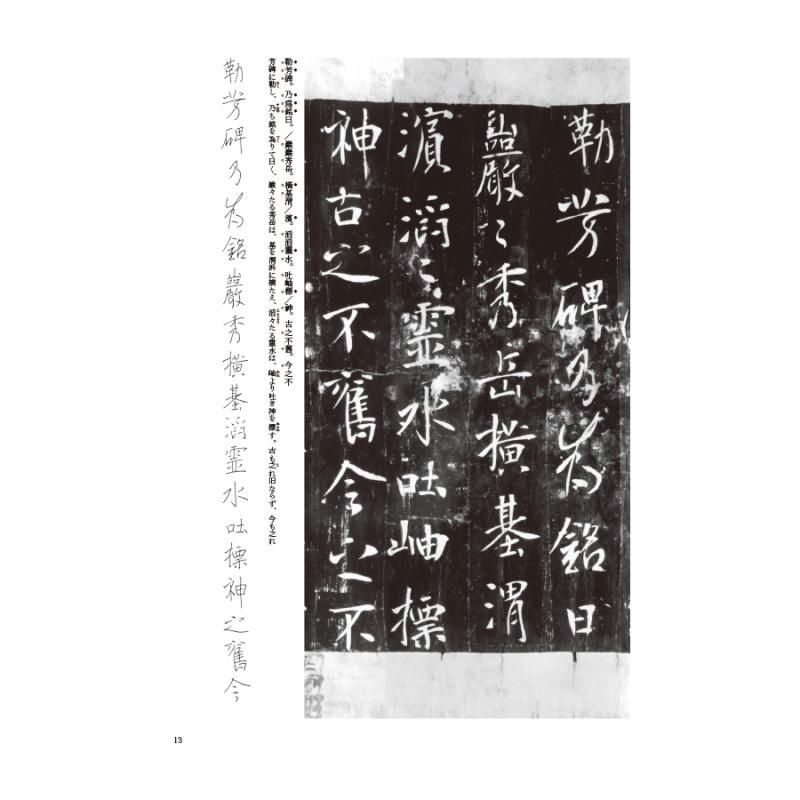 勒芳碑乃為銘曰
巖〻秀岳横基渭
濱滔〻靈水吐岫標
神古之不舊今之不
勒芳碑。乃爲銘曰。／巖巖秀岳。横基渭／濱。滔滔靈水。吐岫標／神。古之不舊。今之不
芳碑に勒し、乃ち銘を為りて曰く、巖々たる秀岳は、基を渭浜に横たえ、滔々たる靈水は、岫より吐き神を標す。古も之れ旧ならず、今も之れ
勒芳碑乃為銘巖秀横基滔靈水吐標神之舊今
13